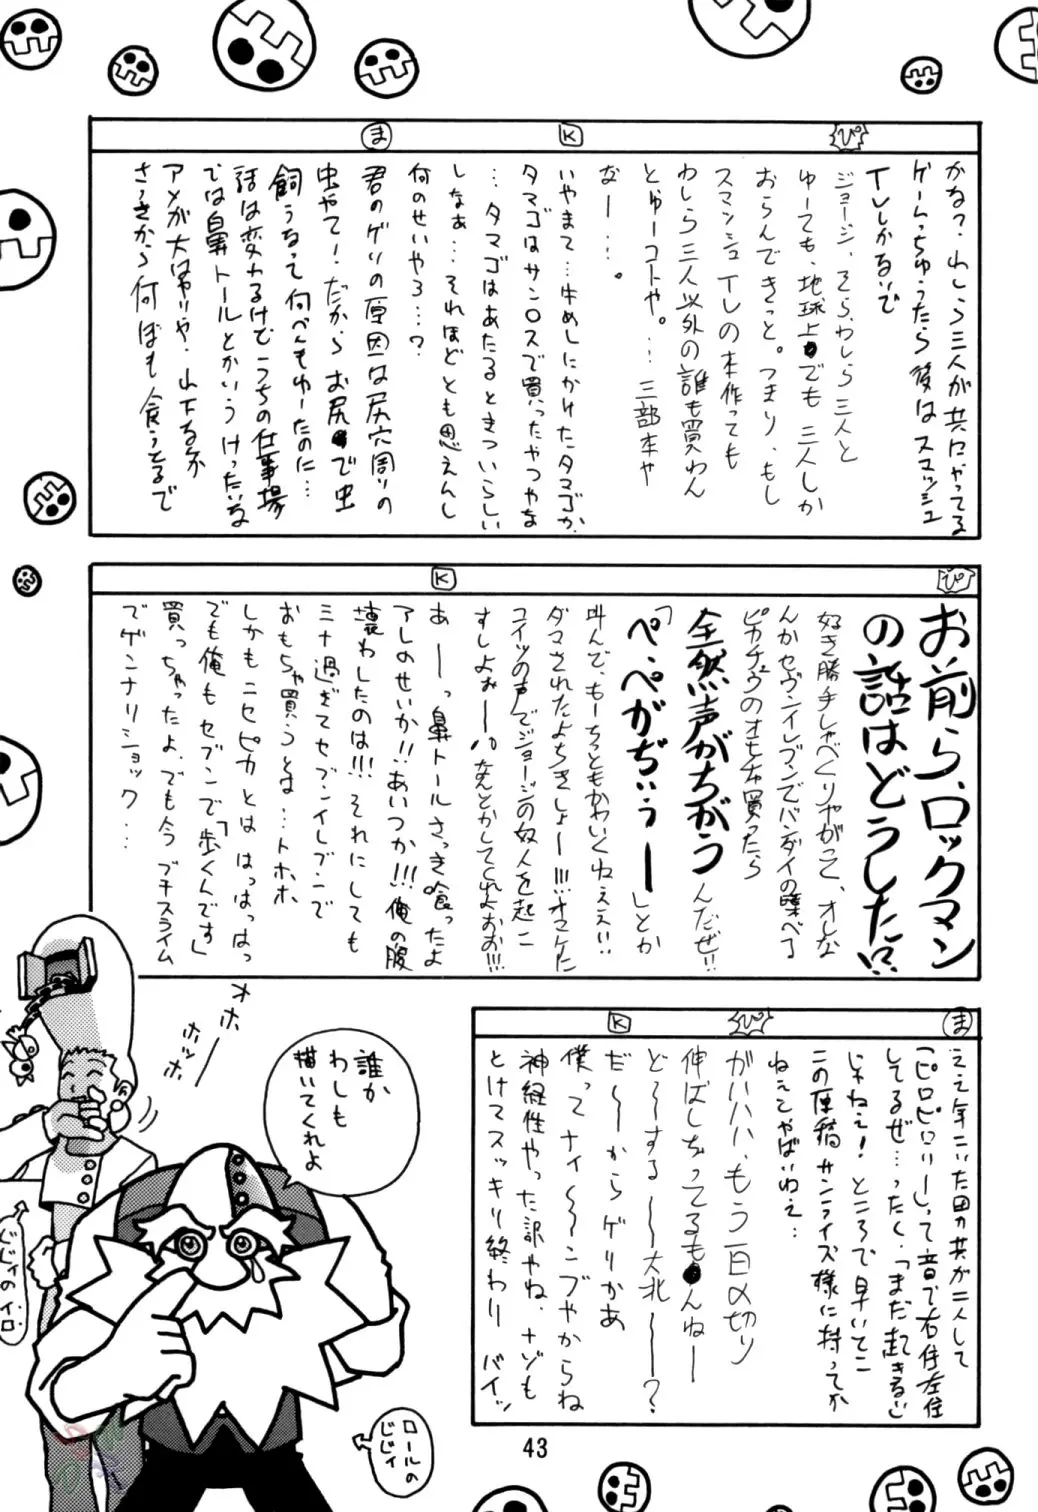 ぴ
かな?わしら三人が共にやってる
ゲームっちゅうたら後はスマッシュ
TVしかないで
ジョージ、そら、わしら三人と
ゆーても、地球上でも三人しか
おらんできっと。つまり、もし
スマッシュTVの本作っても
わしら三人以外の誰も買わん
とゆーコトや。…三部本や
なー…。
K
いやまて…牛めしにかけたタマゴか、
タマゴはサンロスで買ったやつやな
…タマゴはあたるときついらしい
しなぁ…それほどとも思えんし
何のせいやろ…?
ま
君のゲリの原因は尻穴周りの
虫やて!だから、お尻で虫
飼うなって何べんもゆーたのに…
話は変わるけどうちの仕事場
では鼻トールとかいうけったいな
アメが大はやりや、山下るるか
さっきから何ぼも食うとるで
ぴ
お前ら、ロックマン
の話はどうした!?
好き勝手しゃべくりやがって、オレな
んかセヴンイレブンでバンダイの喋べる
ピカチュウのオモチャ買ったら
全然声がちがうんだぜ!!
「ペ・ペがぢぃぅー」とか
叫んで、もーちっともかわいくねぇぇ!!
ダマされたよちきしょー!!!オマケに
コイツの声でジョージの奴人を起こ
すしよぉーパなんとかしてくれよおお!!!
K
あーーっ鼻トールさっき喰ったよ
アレのせいか!!あいつか!!!俺の腹
壊わしたのは!!!それにしても
ミナ過ぎてセブンイレブンで
おもちゃ買うとは…トホホ
しかもニセピカとははっはっはっ
でも俺もセブンで「歩くんです」
買っちゃったよ、でも今プチスライム
でゲンナリショック…
ま
ええ年こいた田力共が二人して
「ピロピロリー」って音で右往左往
してるぜ…ったく、「まだ起きるな」
じゃねぇ!ところで早いてこ
この原稿サンライズ様に持ってか
ねぇとやばいねぇ…
ぴ
ガハハハ、もう一日〆切り
伸ばしちってるもんねー
ど〜〜する〜〜大北ー〜?
K
だ〜〜からゲリかぁ
僕ってナイ〜〜ンブやからね
神経性やった訳やね、ナゾも
とけてスッキリ終わりバイッ
オホホー
ホッホ
誰か
わしも
描いてくれよ
じじぃのイロ
ロールの
じじィ
43